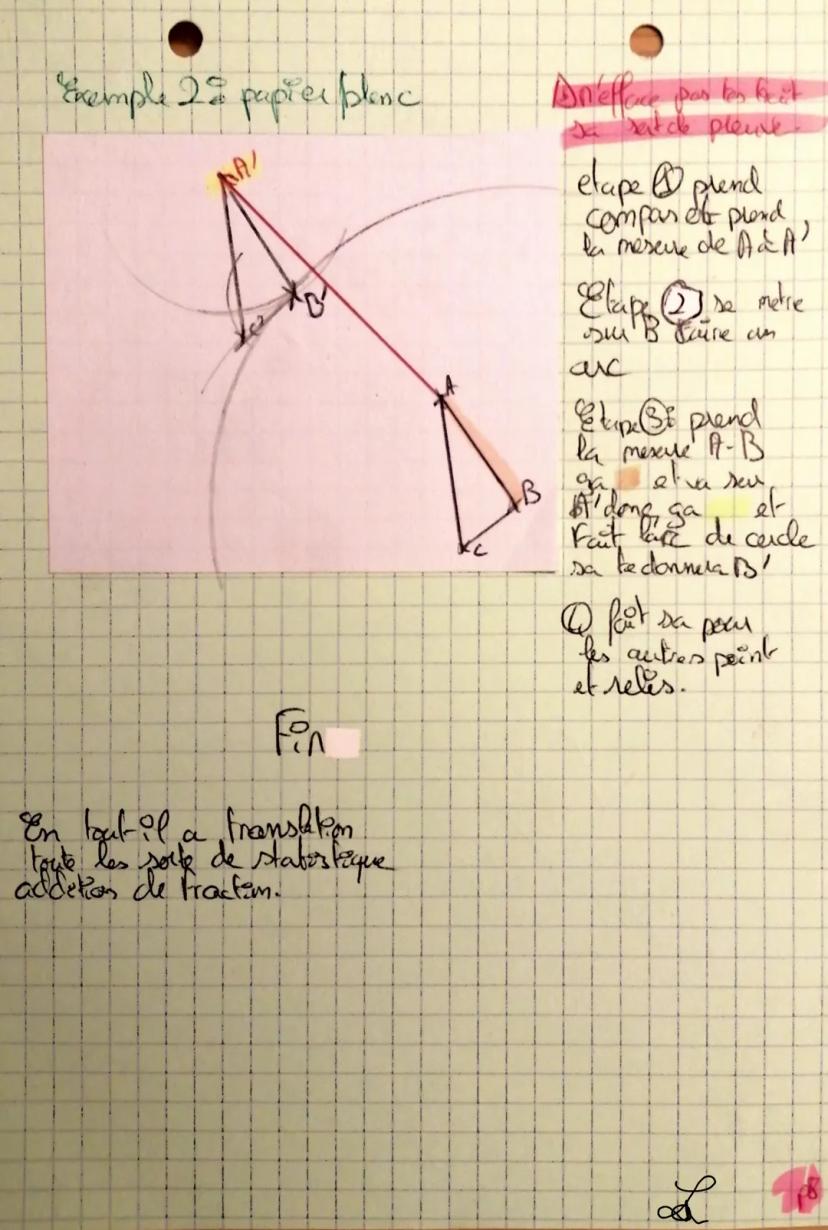 Exemple 2: papier blanc
⚠ n'efface pas tes trait
sa sert de preuve.
A'
B'
C'
A
B
C
etape ① prend
compas et prend
la meseure de A à A'
Etape ② se metre
sur B faire un
arc
Etape ③: prend
la meseure A-B
ça et va sur
A' donc ça et
fait l'arc de cercle
sa te donnera B'
④ fait sa pour
les autres point
et reliés.
Fin
En tout il a translation
toute les sorte de statistique
addition de fraction.
p8